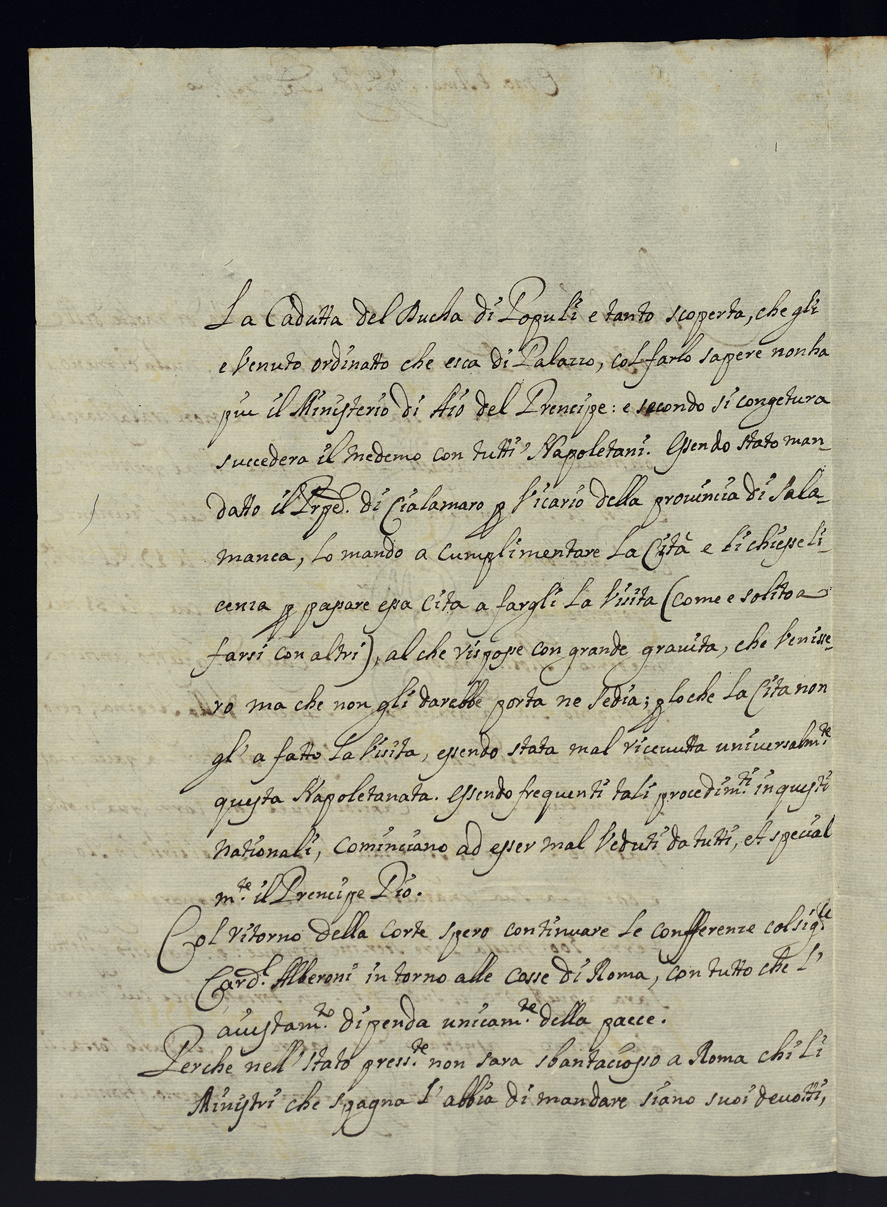 La Cadutta del Ducha di Populi e tanto scoperta, che gli
e venuto ordinatto che esca di Palazzo, col farlo sapere non ha
piu il Ministerio di Aio del Prencipe: e secondo si congetura
succedera il medemo con tutti Napoletani. Essendo stato man-
datto il Prpe. di Cialamaro p Vicario della provincia di Sala-
manca, lo mando a cumplimentare la Cità e li chiesse li-
cenza p passare essa Cita a fargli la Visita (come e solito a
farsi con altri), al che rispose con grande gravita, che venisse-
ro ma che non gli darebbe porta ne sedia; p lo che la Cita non
gl' a fatto la Visita, essendo stata mal ricevutta universalmte
questa Napoletanata. Essendo frequenti tali procedimti in questi
nationali, cominciano ad esser mal veduti da tutti, et special
mte il Prencipe Pio.
Col ritorno della Corte spero continuare le confferenze col sigle
Cardl Alberoni in torno alle cosse di Roma, con tutto che l'
aiustamto dipenda unicamte della paece.
Perche nell' stato presste non sara sbantaciosso a Roma chi li
Ministri che spagna l' abbia di mandare siano suoi devotti,